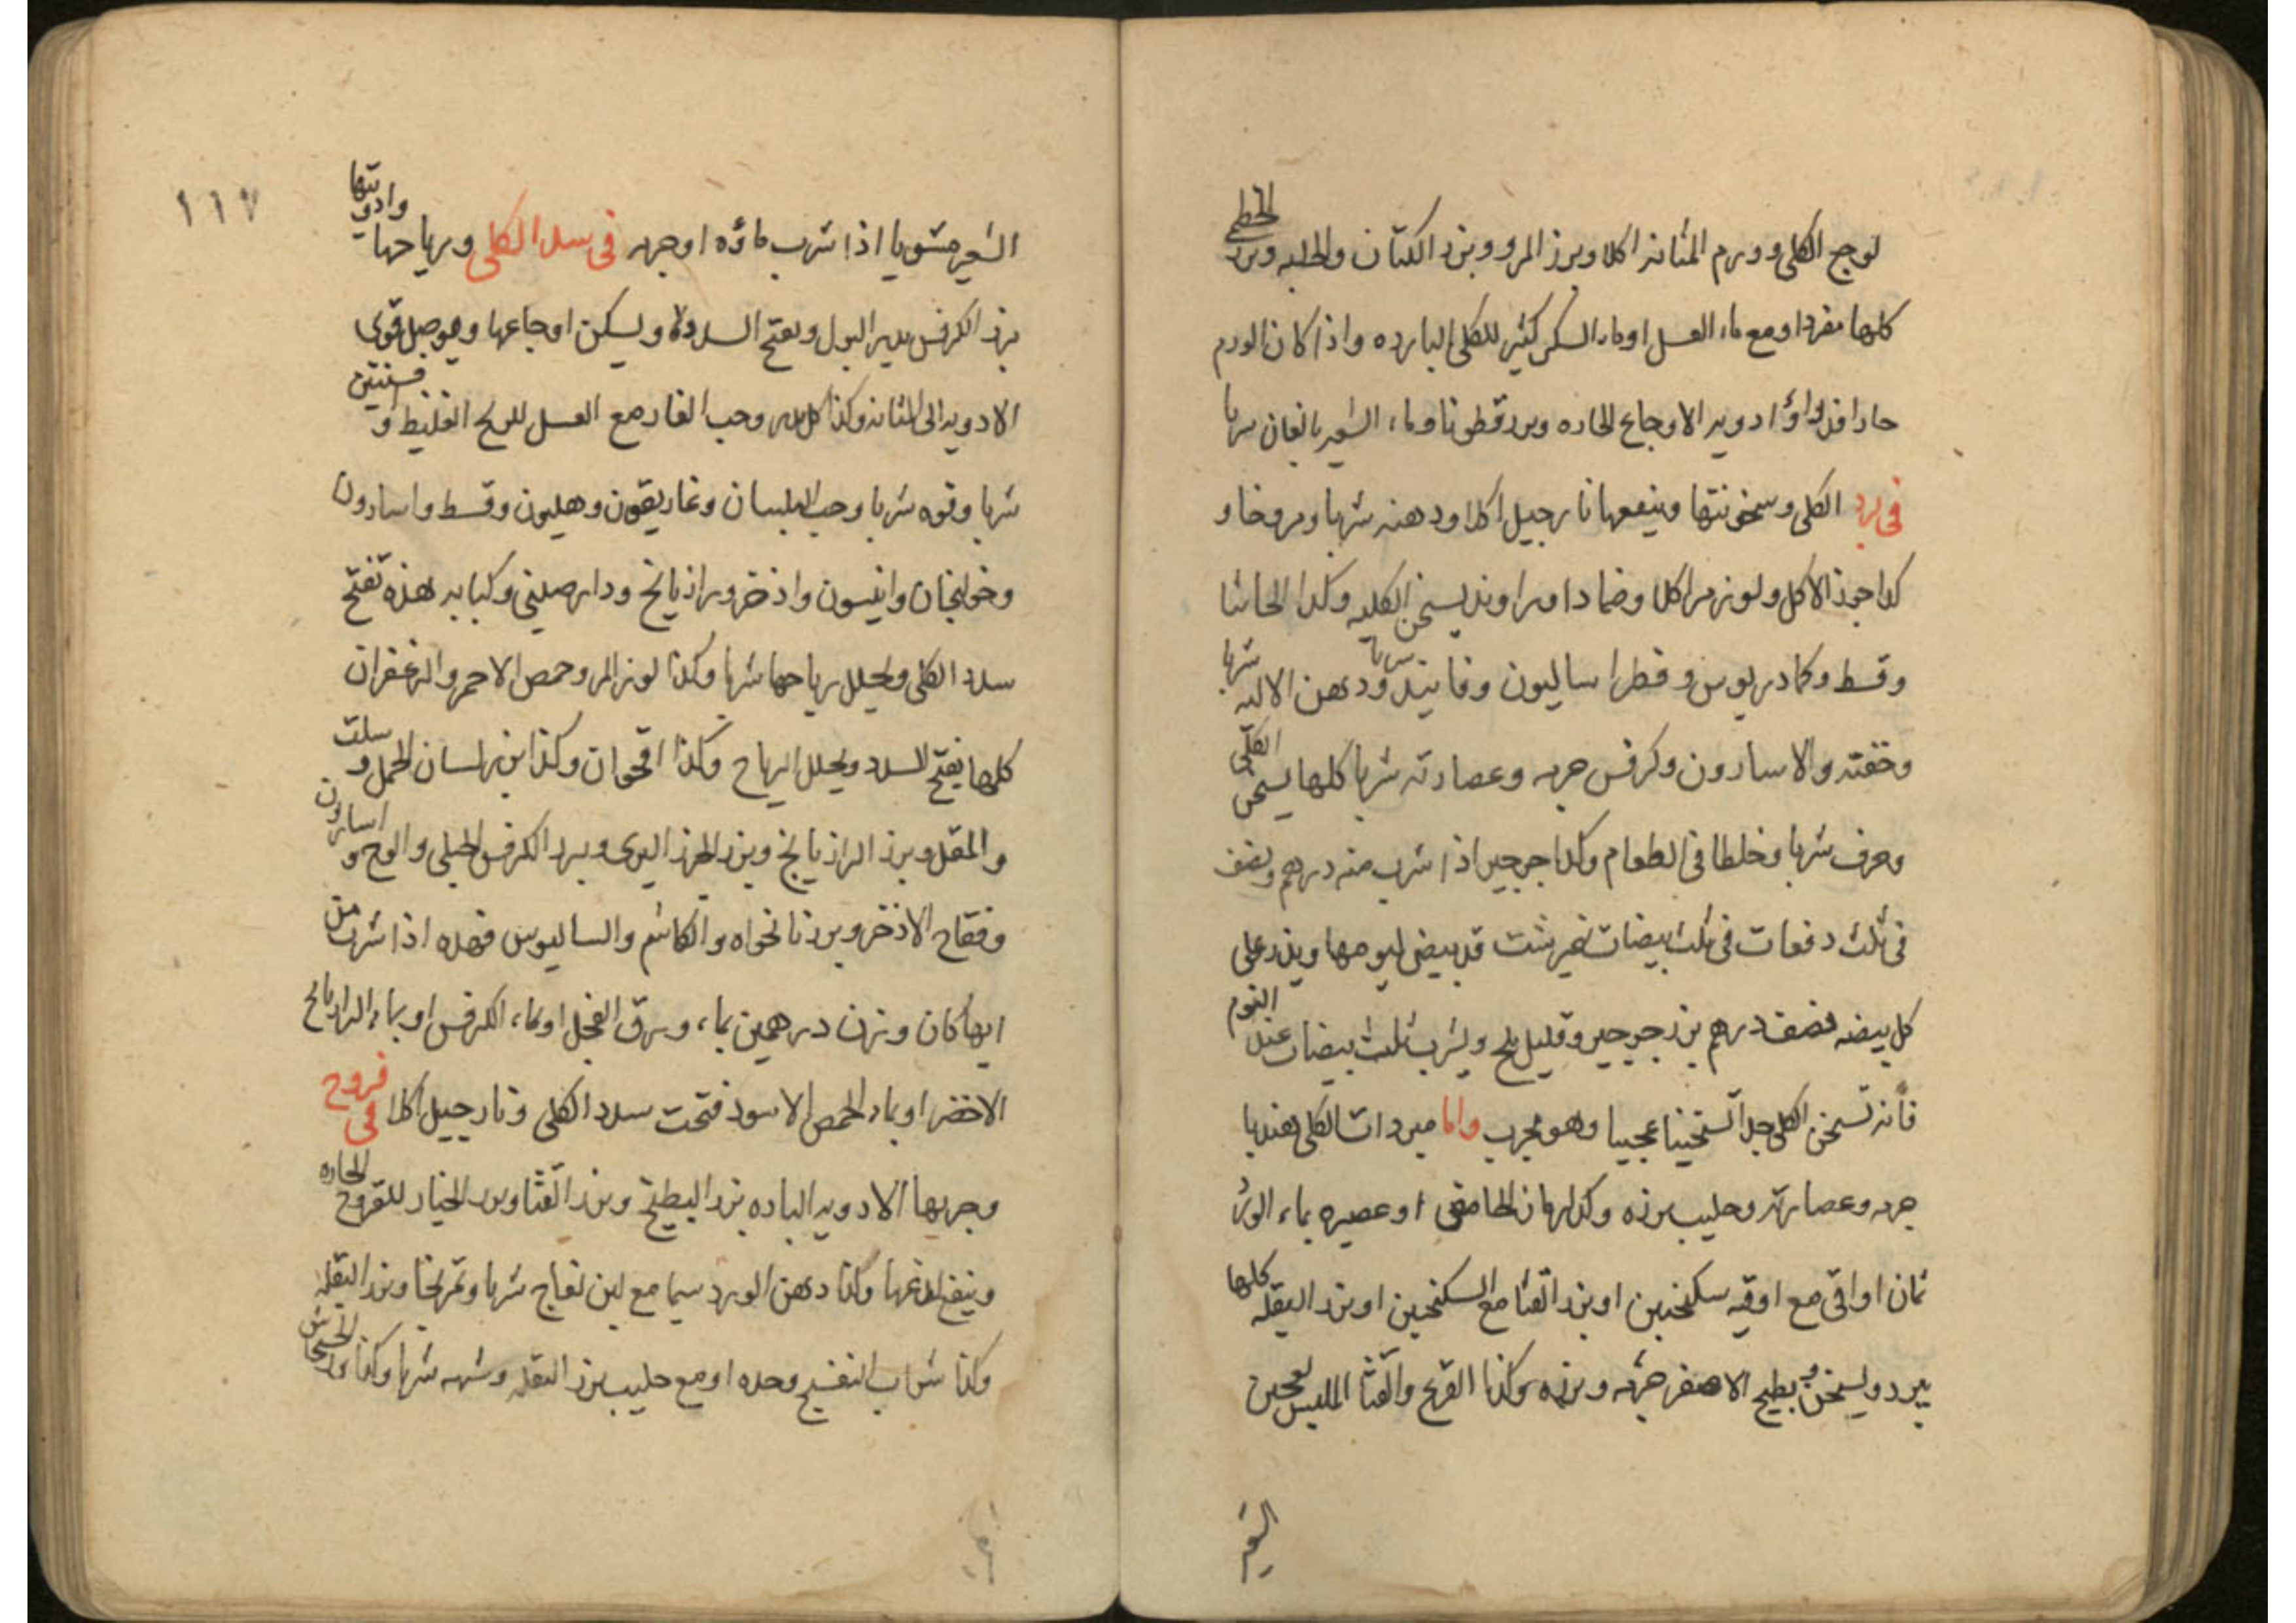 لوجع الكلى وورم المثانه اكلا وبزر المرو وبزر الكتان والحلبه وبزر الخطمى
كلها مفردا ومع ماء العسل او ماء السكر كثير للكلى البارده واذا كان الورم
حارا فدواؤه ادويه الاوجاع الحاره وبزرقطونا وماء الشعير نافعان شربا
فى برد الكلى وسخونتها وينفعها نارجيل اكلا ودهنه شربا ومروخا و
كذا جوز الاكل ولوز مر اكلا وضمادا وراوند يسخن الكليه وكذا الحاشا
وقسط وكمادريوس وفطراساليون وفانيد شربا ودهن الاليه شربا
وحقنه والاسارون وكرفس جرمه وعصارته شربا كلها يسخن الكلى
وحرف شربا وخلطا فى الطعام وكذا جرجير اذا شرب منه درهم ونصف
فى ثلث دفعات فى ثلث بيضات نيمرشت قد بيض ليومها ويذر على
كل بيضه نصف درهم بزر جرجير وقليل ملح ويشرب ثلث بيضات عند النوم
فأنه تسخن الكلى جدا تسخينا عجيبا وهو مجرب واما مبردات الكلى هندبا
جرمه وعصارته وحليب بزره وكذا رمان الحامض او عصيره بماء الورد
ثمان اواقى مع اوقيه سكنجبين او بزر القثا مع السكنجبين او بزر البقله كلها
يبرد ويسخن و بطيح الاصفر جرمه وبزره وكذا القرع والقثا المليس لعجين
الشعير
١١٧
الشعير مشويا اذا شرب ماؤه او جرمه فى سدد الكلى ورياحها وادويتها
بزر الكرفس يدر البول ويفتح السدد ويسكن اوجاعها ويوصل قوى
الادويه الى المثانه وكذا وحب الغار مع العسل للريح الغليظ و افسنتين
شربا وفوه شربا وحب البلسان وغاريقون وهليون وقسط واسارون
وخولنجان وانيسون واذخر ورازيانج ودارصينى وكبابه هذه تفتح
سدد الكلى ويحلل رياحها شربا وكذا لوز المر وحمص الاحمر والزعفران
كلها يفتح السدد ويحلل الرياح وكذا اقحوان وكذا بزر لسان الحمل و سلت
والمقل وبزر الرازيانج وبزر الجزر البرى وبزر الكرفس الجبلى والوج و اسارون
وفقاح الاذخر وبزر نانخواه والكاشم والساليوس فهذه اذا شرب من
ايها كان وزن درهمين بماء ورق الفجل او بماء الكرفس او بماء الرازيانج
الاخضر او بماء الحمص الاسود فتحت سدد الكلى ونارجيل اكلا فى قروح
وجربها الادويه البارده بزر البطيخ وبزر القثا وبزر الخيار للقروح الحاره
وينفع لذعها وكذا دهن الورد سيما مع لبن نعاج شربا وتمريخا وبزر البقله
وكذا شراب البنفسج وحده او مع حليب بزر البقله وشربه شربا وكذا بزر الخشخاش